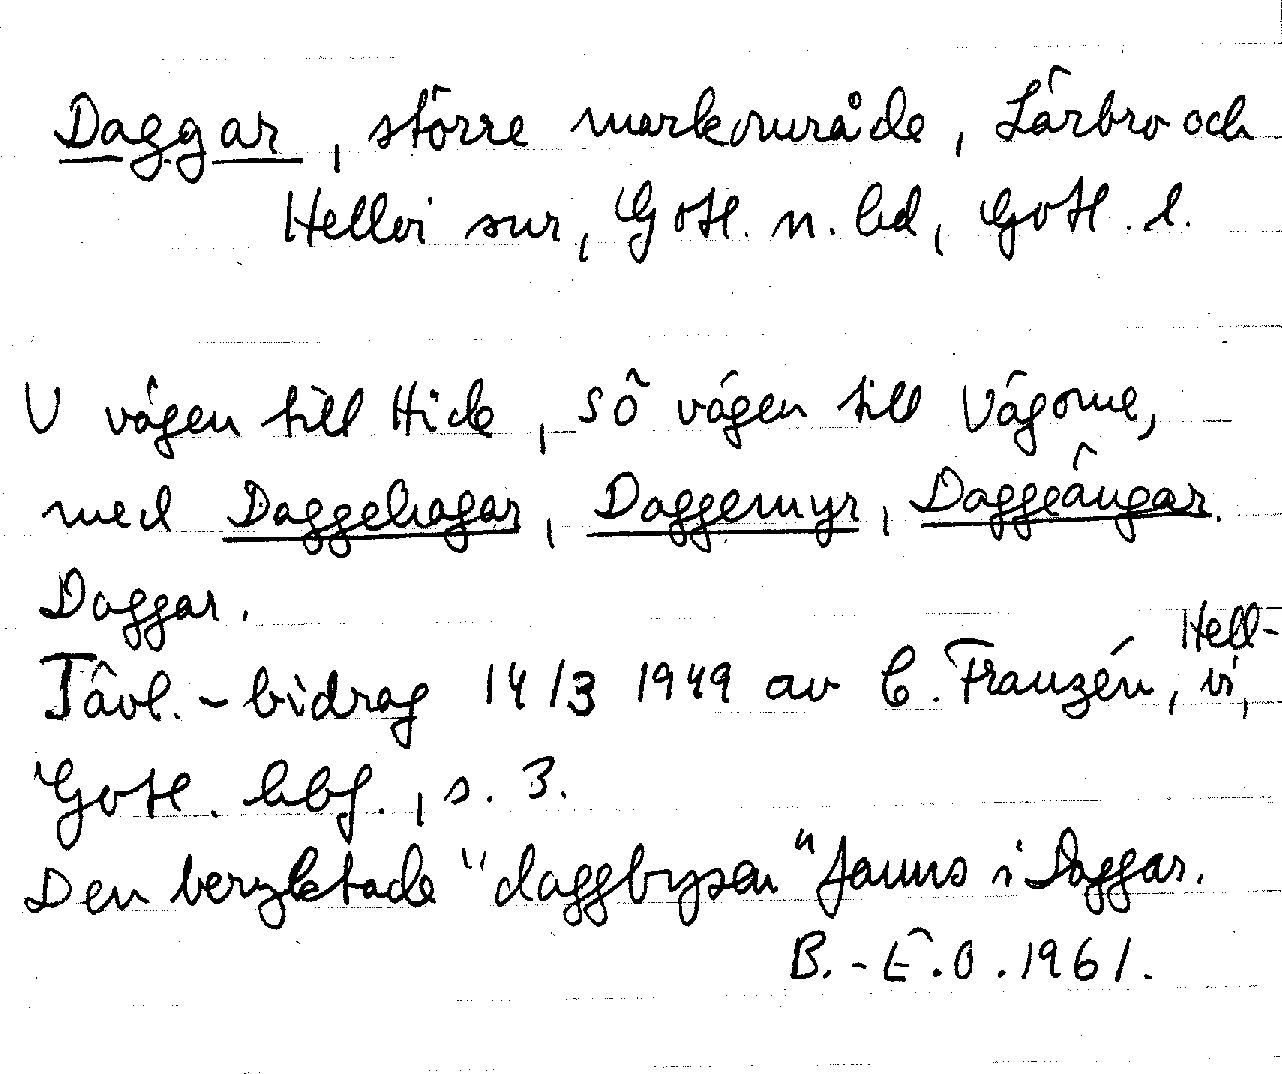 Daggar, större markområde, Lärbro och
Hellvi snr, Gotl. n. hd, Gotl. l.
V vägen till Hide, sö vägen till Vägome,
med Daggehagar, Daggemyr, Daggeängar.
Daggar.
Tävl.-bidrag 14/3 1949 av C. Franzén, Hellvi,
Gotl. hbf., s. 3.
Den beryktade "daggbysen" fanns i Daggar.
B.-E.O. 1961.